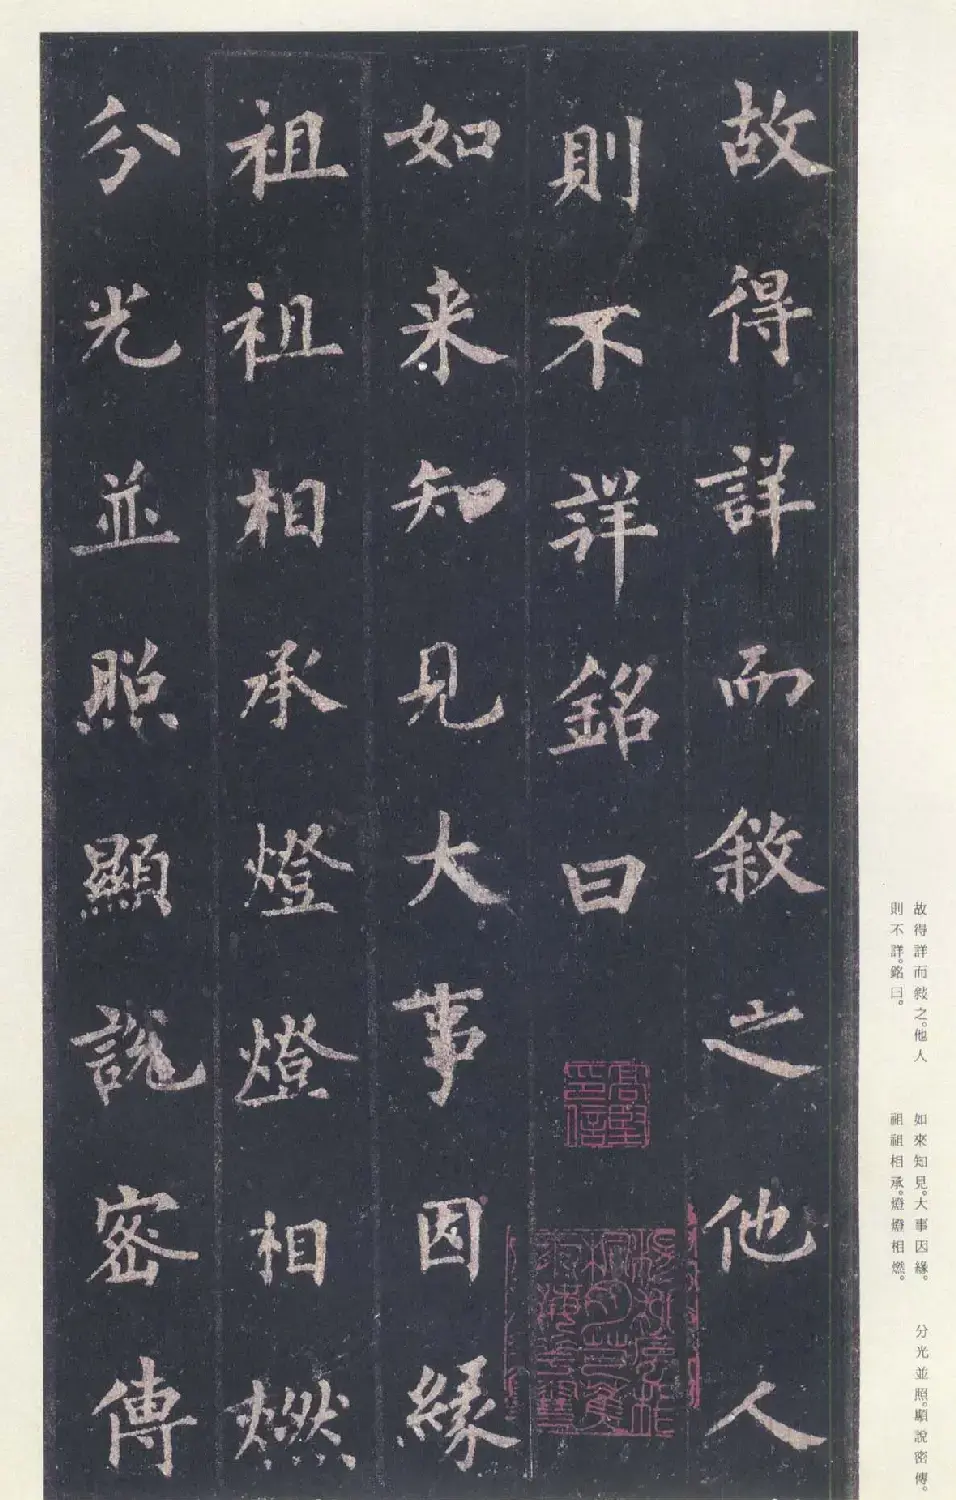 故得詳而敘之他人
則不詳銘曰
如来知見大事因緣
祖祖相承燈燈相燃
分光並照顯説密傳
故得詳而敍之。他人
則不詳。銘曰。
如來知見。大事因緣。
祖祖相承。燈燈相燃。
分光並照。顯說密傳。